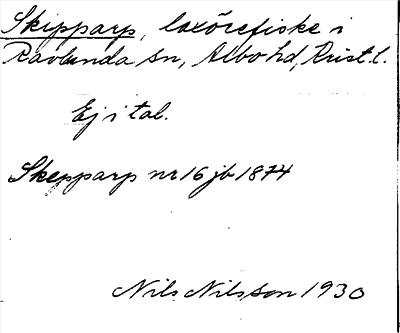 Skipparp, laxörefiske i
Ravlunda sn, Albo hd, Krist. l.
Ej i tal.
Skepparp nr 16 jb 1874
Nils Nilsson 1930